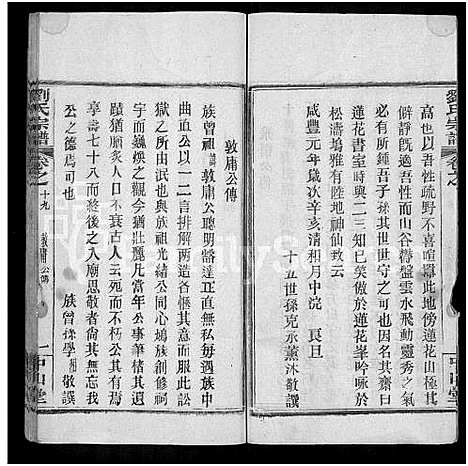 劉氏宗譜
卷之
中山堂
高也以吾性疏野不喜喧嚣此地傍蓮花山極其
僻靜既適吾性而又山谷磚盤雲水飛動靈秀之氣
有所鍾吾子孫其世世守之可也因顏其室曰
蓮花書室時與二三知已笑傲於蓮花峯吟咏於
松濤塢雅有陸地神仙致云
咸豐元年歲次辛亥清和月中浣 良旦
十五世孫克承薰沐敬譔
敦庸公傳
族曾祖敦庸公聰明謦達正直無私每遇族中
曲直公以一二言排解兩造各愜其意族中以訟
獄之所由是也與族祖光緒公同心塢族創修祠
宇而巍煥之觀今猶壯麗凡當年公事筆楮其
蹟猶膾炙人口不衰古人云死而不朽公其有焉
享壽七十八而終後之入廟思敬者尚其無忘我
公之德焉可也
族曾孫學 敬譔
劉氏宗譜
卷之
十九
敦庸公傳
一中山堂